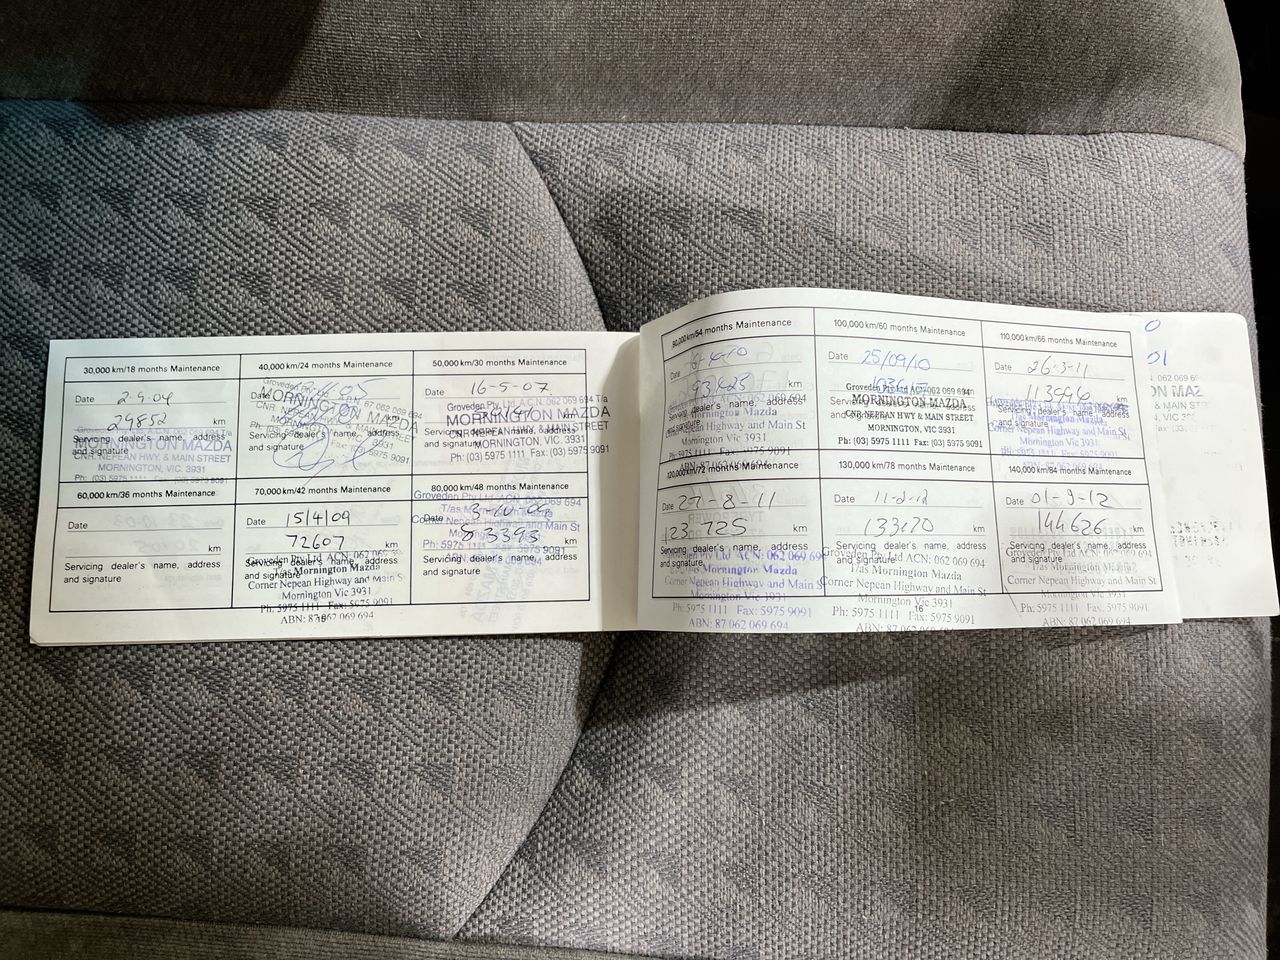 30,000 km/18 months Maintenance
Date 2-9-04
29852 km
Servicing dealer's name, address
and signature
MORNINGTON MAZDA
CNR. NEPEAN HWY. & MAIN STREET
MORNINGTON, VIC. 3931
40,000 km/24 months Maintenance
Date
km
Servicing dealer's name, address
and signature
MORNINGTON MAZDA
50,000 km/30 months Maintenance
Date 16-5-07
Groveden Pty. Ltd. A.C.N. 062 069 694 T/a
MORNINGTON MAZDA
CNR. NEPEAN HWY. & MAIN STREET
MORNINGTON, VIC. 3931
Ph: (03) 5975 1111 Fax: (03) 5975 9091
60,000 km/36 months Maintenance
Date
km
Servicing dealer's name, address
and signature
70,000 km/42 months Maintenance
Date 15/4/09
72607 km
Servicing dealer's name, address
and signature
Groveden Pty Ltd ACN: 062 069 694
T/as Mornington Mazda
Corner Nepean Highway and Main St
Mornington Vic 3931
Ph: 5975 1111 Fax: 5975 9091
ABN: 87 062 069 694
15
80,000 km/48 months Maintenance
Date
km
Servicing dealer's name, address
and signature
Groveden Pty Ltd ACN: 062 069 694
T/as Mornington Mazda
Corner Nepean Highway and Main St
90,000 km/54 months Maintenance
Date
93423 km
Servicing dealer's name, address
and signature
Mornington Mazda
Corner Nepean Highway and Main St
Mornington Vic 3931
100,000 km/60 months Maintenance
Date 25/09/10
Groveden Pty Ltd ACN: 062 069 694
MORNINGTON MAZDA
CNR NEPEAN HWY & MAIN STREET
MORNINGTON, VIC 3931
Ph: (03) 5975 1111 Fax: (03) 5975 9091
110,000 km/66 months Maintenance
Date 26-3-11
113996 km
Servicing dealer's name, address
and signature
Mornington Vic 3931
120,000 km/72 months Maintenance
Date 27-8-11
123-725 km
Servicing dealer's name, address
and signature
Groveden Pty Ltd ACN: 062 069 694
T/as Mornington Mazda
Corner Nepean Highway and Main St
Mornington Vic 3931
Ph: 5975 1111 Fax: 5975 9091
ABN: 87 062 069 694
130,000 km/78 months Maintenance
Date 11-2-12
133170 km
Servicing dealer's name, address
and signature
Groveden Pty Ltd ACN: 062 069 694
T/as Mornington Mazda
Corner Nepean Highway and Main St
Mornington Vic 3931
Ph: 5975 1111 Fax: 5975 9091
16
140,000 km/84 months Maintenance
Date 01-9-12
144626 km
Servicing dealer's name, address
and signature
Groveden Pty Ltd ACN: 062 069 694
T/as Mornington Mazda
Corner Nepean Highway and Main St
Mornington Vic 3931
Ph: 5975 1111 Fax: 5975 9091
ABN: 87 062 069 694